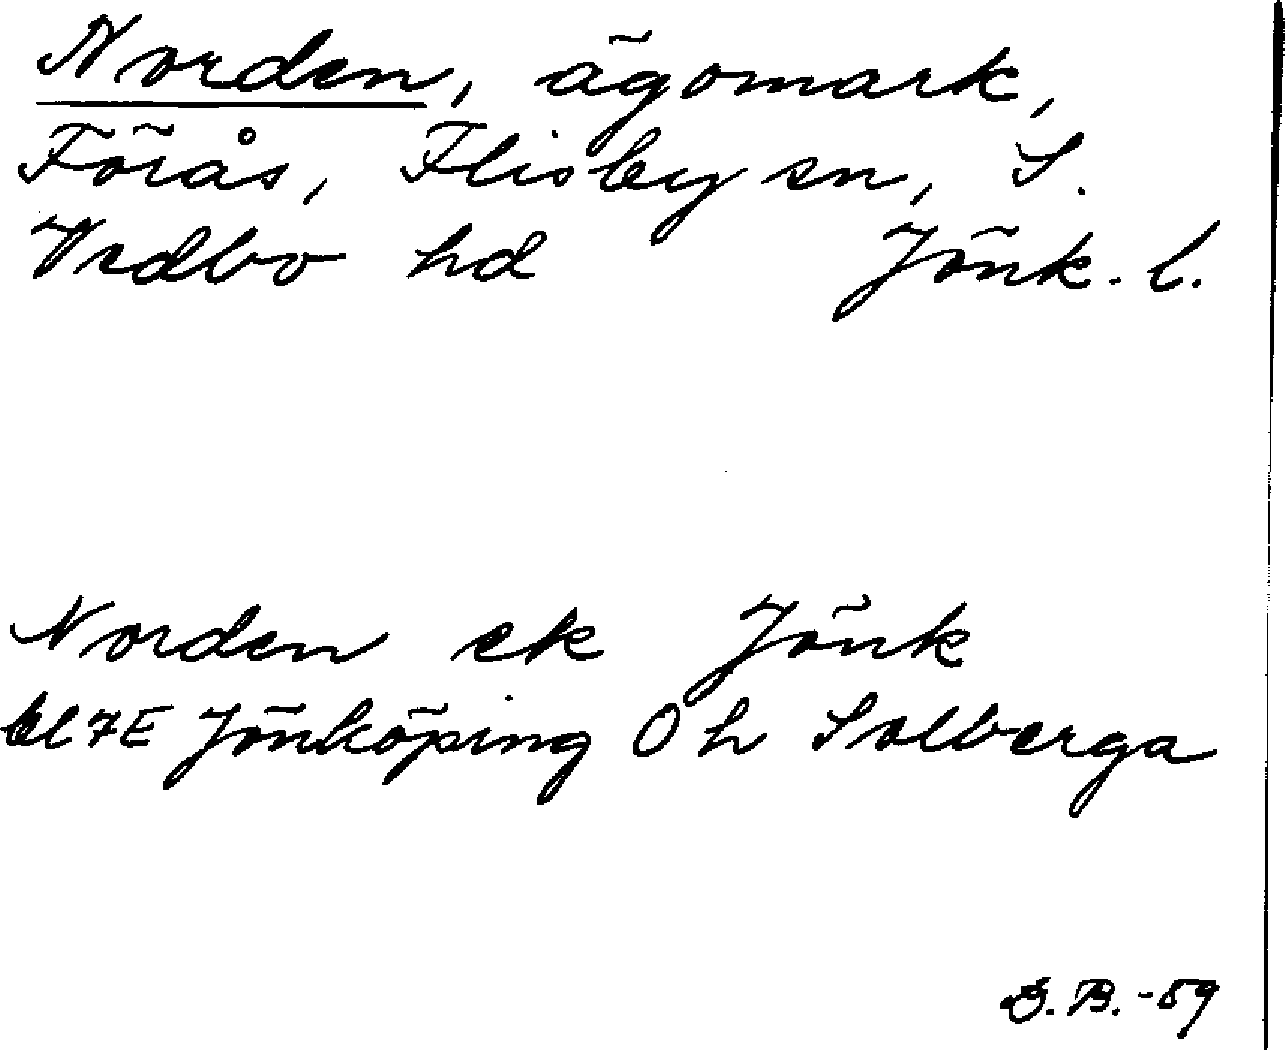 Norden, ägomark,
Förås, Flisby sn, S.
Vedbo hd Jönk. l.
Norden ek Jönk
bl 7E Jönköping O h Solberga
B.-59